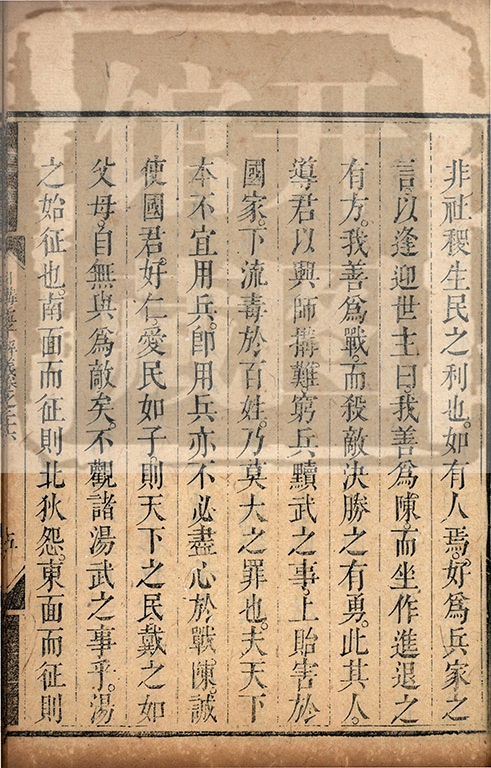 非社稷生民之利也。如有人焉。好爲兵家之
言。以逢迎世主。曰。我善爲陳。而坐作進退之
有方。我善爲戰。而殺敵決勝之有勇。此其人。
導君以興師搆難。窮兵黷武之事。上貽害於
國家。下流毒於百姓。乃莫大之罪也。夫天下
本不宜用兵。卽用兵亦不必盡心於戰陳。誠
使國君好仁。愛民如子。則天下之民。戴之如
父母。自無與爲敵矣。不觀諸湯武之事乎。湯
之始征也。南面而征則北狄怨。東面而征則
日講四書解義卷之二十六
五